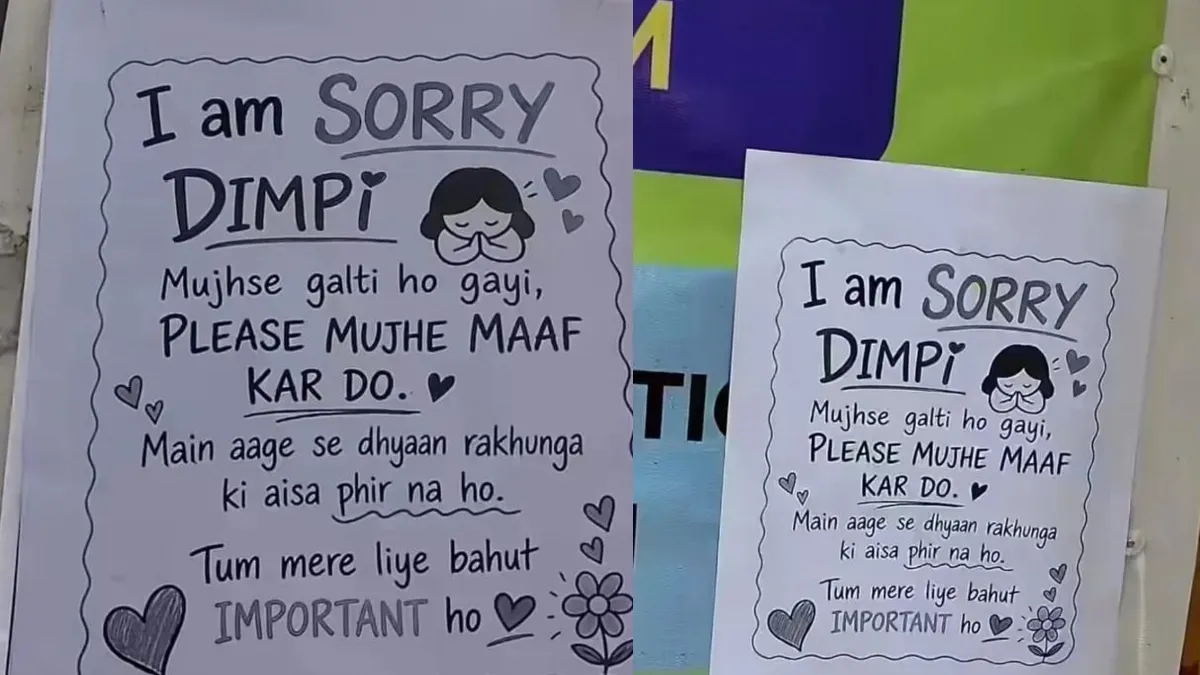 I am SORRY
DIMPi
Mujhse galti ho gayi,
PLEASE MUJHE MAAF
KAR DO.
Main aage se dhyaan rakhunga
ki aisa phir na ho.
Tum mere liye bahut
IMPORTANT ho
M
TIO
I am SORRY
DIMPi
Mujhse galti ho gayi,
PLEASE MUJHE MAAF
KAR DO.
Main aage se dhyaan rakhunga
ki aisa phir na ho.
Tum mere liye bahut
IMPORTANT ho